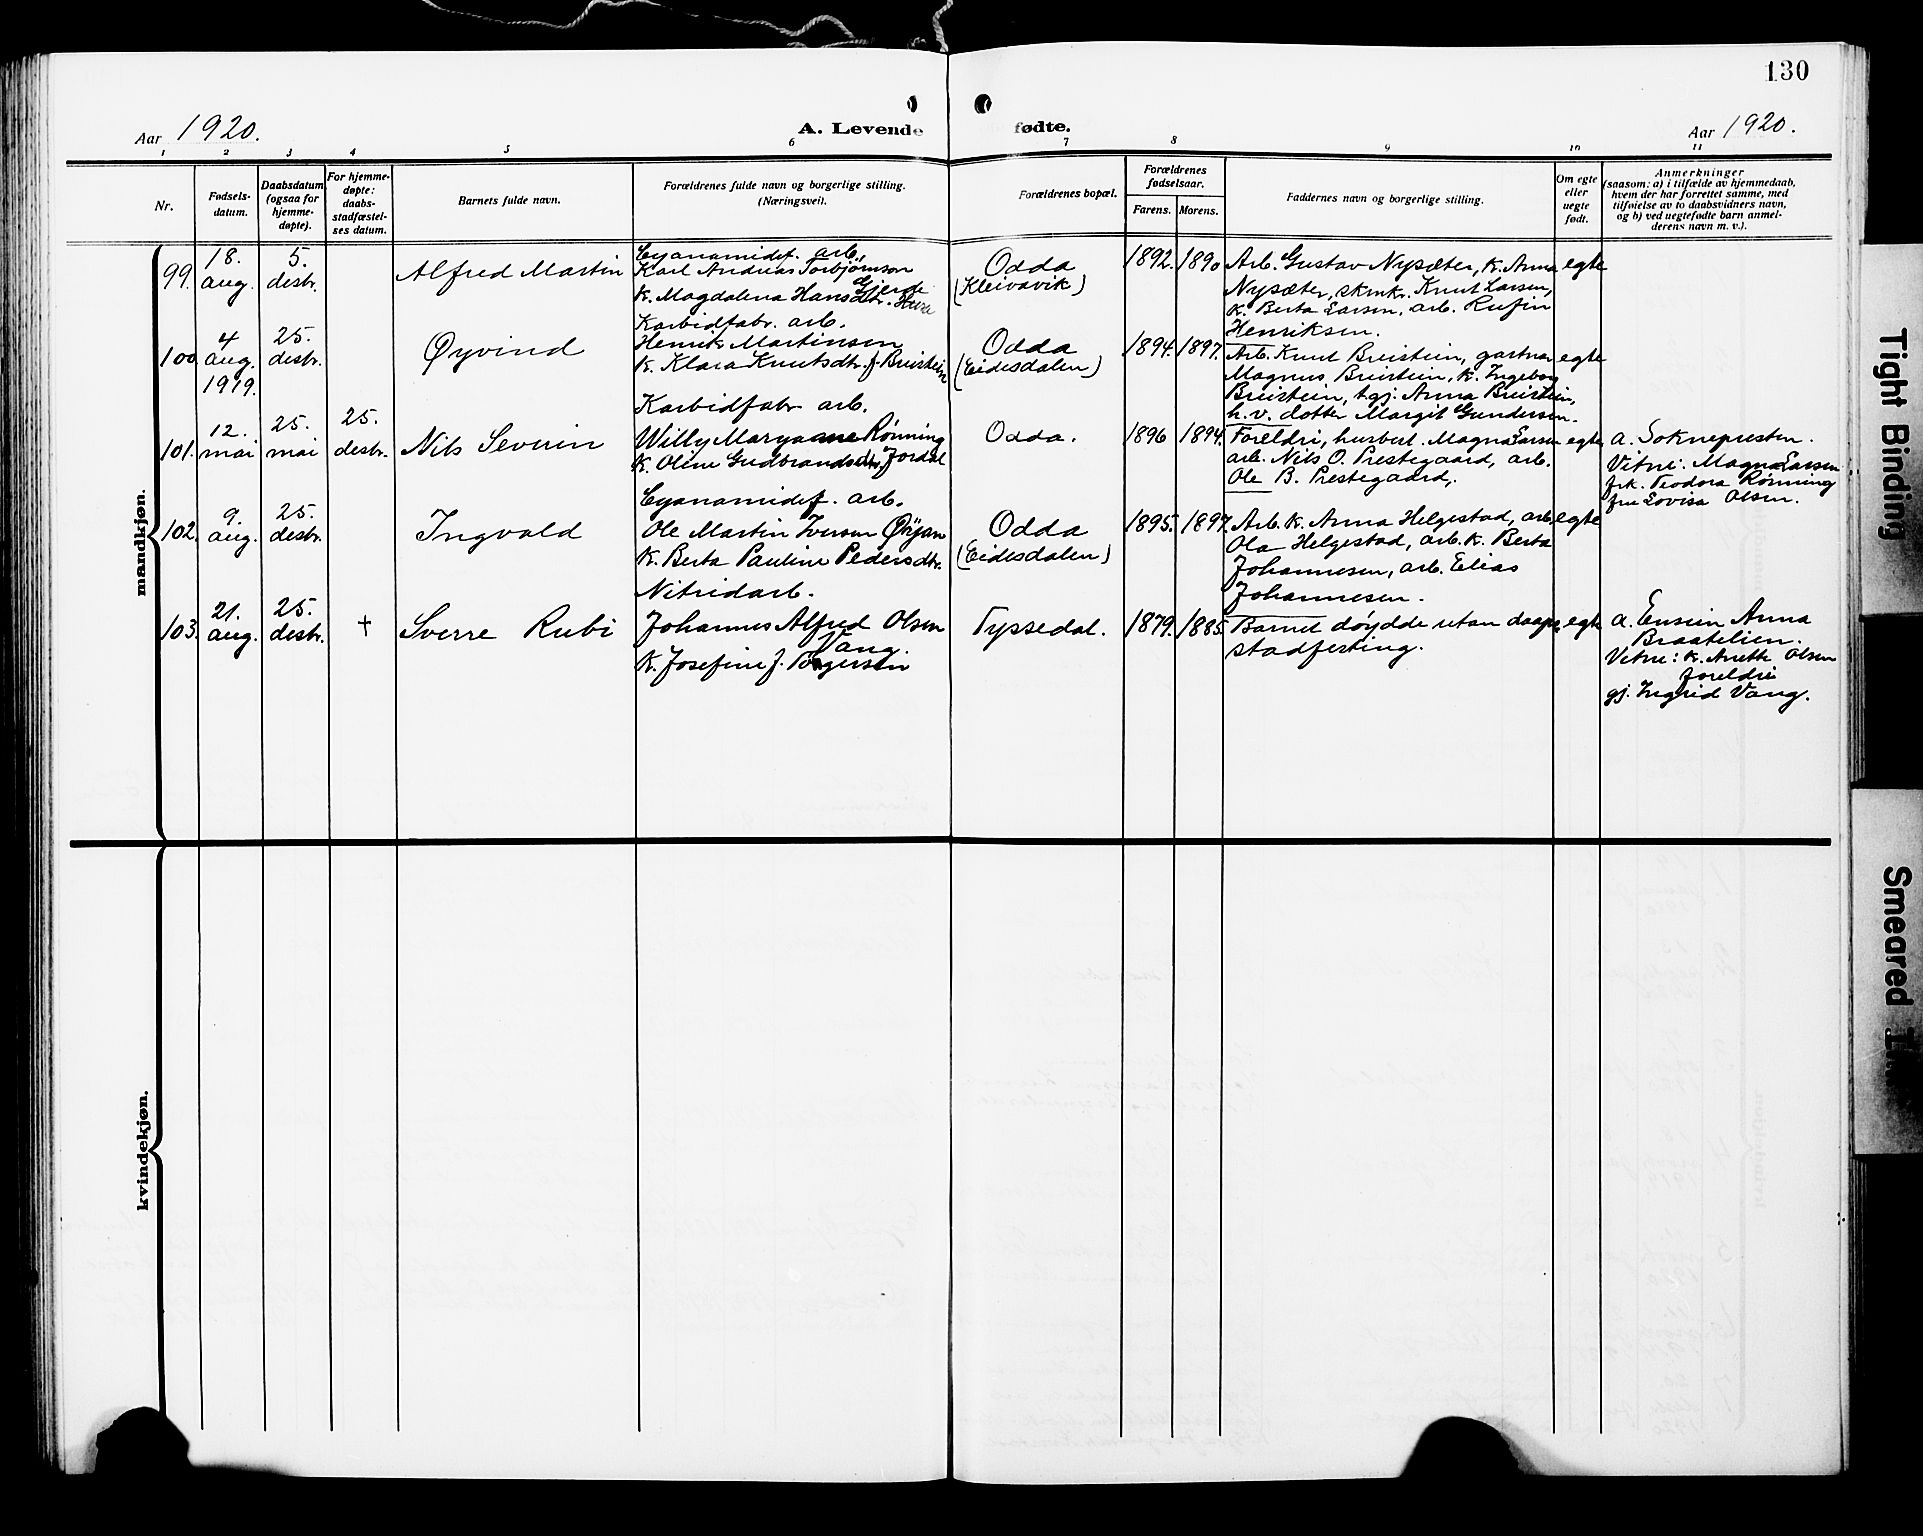 130
Aar 1920.
A. Levende fødte.
Aar 1920.
1 2 3 4 5 6 7 8 9 10 11
Nr.
Fødsels-
datum.
Daabsdatum
(ogsaa for
hjemme-
døpte).
For hjemme-
døpte:
daabs-
stadfæstel-
ses datum.
Barnets fulde navn.
Forældrenes fulde navn og borgerlige stilling.
(Næringsvei).
Forældrenes bopæl.
Forældrenes
fødselsaar.
Farens. Morens.
Faddernes navn og borgerlige stilling.
Om egte
eller
uegte
født.
Anmerkninger
(saasom: a) i tilfælde av hjemmedaab,
hvem der har forrettet samme, med
tilføielse av to daabsvidners navn,
og b) ved uegtefødte barn anmel-
derens navn m. v.).
mandkjøn.
99.
18.
aug.
5.
desbr.
Alfred Martin
Cyanamidf. arb.
Karl Andreas Torbjørnson
Gjerde
K. Magdalena Hansdtr.
Odda
(Kleivavik)
1892. 1890
Arb. Gustav Nysæter, K. Anna
Nysæter, skmkr. Knut Larsen,
K. Berta Larsen, arb. Rufin
Henriksen.
egte
100
4
aug.
1919.
25.
desbr.
Øyvind
Karbidfabr. arb.
Henrik Martinsen
K. Klara Knutsdtr. f. Breistein
Odda
(Eidesdalen)
1894. 1897.
Arb. Knut Breistein, gartnar
Magnus Breistein, K. Ingeborg
Breistein, tgj. Anna Breistein,
h.v. dotter Margit Gundersen.
egte
101.
12.
mai
25.
mai
25.
desbr.
Nils Severin
Karbidfabr arb.
Willy Maryane Rønning
K. Oline Gudbrandsdtr. Jordal
Odda.
1896 1894.
Foreldri, husbest. Magna Larsen
arb. Nils O. Prestegaard, arb.
Ole B. Prestegaard,.
egte
a. Soknepresten.
Vitni: Magna Larsen
frk. Teodora Rønning
fru Lovisa Olsen.
102.
9.
aug.
25.
desbr.
Ingvald
Cyanamidf. arb.
Ole Martin Iversen Øyjan
K. Berta Pauline Pedersdtr.
Odda
(Eidesdalen)
1895. 1897.
Arb. K. Anna Helgestad, arb.
Ola Helgestad, arb. K. Berta
Johannesen, arb. Elias
Johannesen.
egte
103.
21.
aug.
25.
desbr.
†
Sverre Rubi
Nitridarb.
Johannes Alfred Olsen
Vang.
K. Josefine f. Torgersen
Tyssedal.
1879. 1885.
Barnet døydde utan daaps
stadfesting.
egte
a. Ensien Anna
Braatelien.
Vitni: K. Anette Olsen
foreldri
gj. Ingrid Vang.
kvindekjøn.
Tight Binding
Smeared